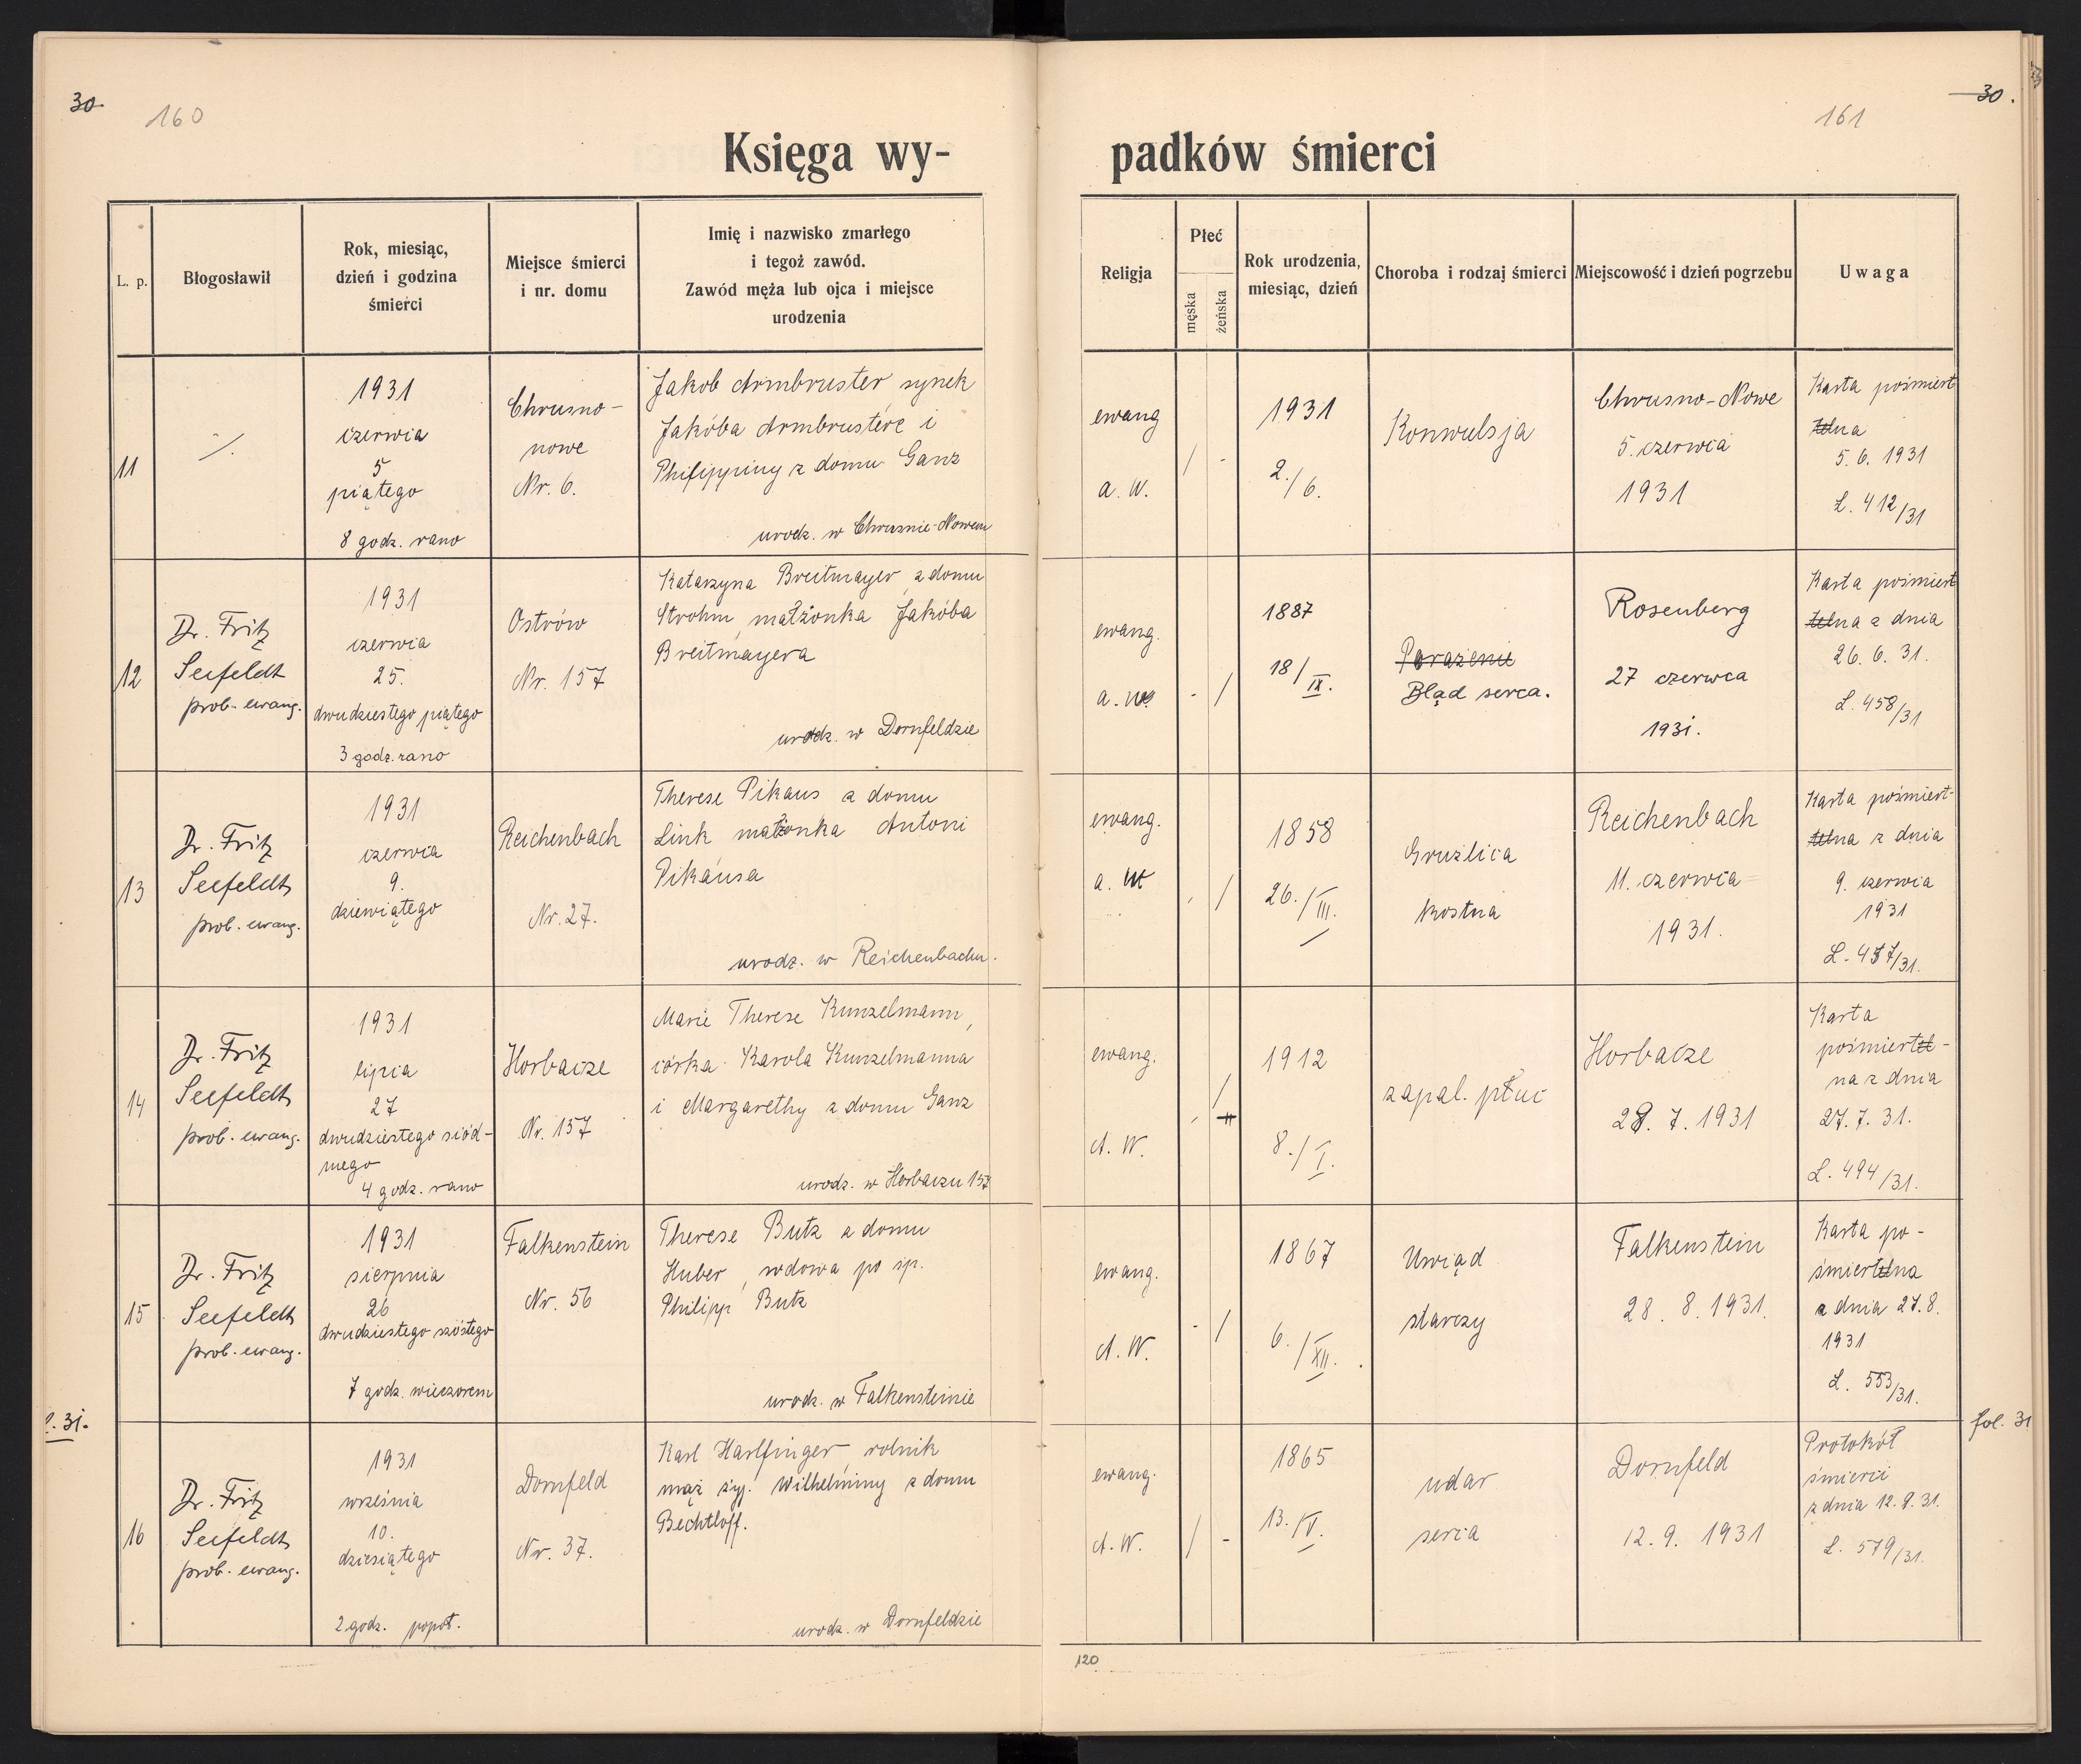 30.
160
Księga wy-
L. p.
Błogosławił
Rok, miesiąc,
dzień i godzina
śmierci
Miejsce śmierci
i nr. domu
Imię i nazwisko zmarłego
i tegoż zawód.
Zawód męża lub ojca i miejsce
urodzenia
11
1931
czerwca
5
piątego
8 godz. rano
Chrusno-
nowe
Nr. 6.
Jakob Armbruster, synek
Jakóba Armbrustera i
Philippiny z domu Ganz
urodz. w Chrusnie-Nowem
12
Dr. Fritz
Seefeldt
prob. ewang.
1931
czerwca
25.
dwudziestego piątego
3 godz. rano
Ostrów
Nr. 157
Katarzyna Breitmayer z domu
Strohm, małżonka Jakóba
Breitmayera
urodz. w Dornfeldzie
13
Dr. Fritz
Seefeldt
prob. ewang.
1931
czerwca
9.
dziewiątego
Reichenbach
Nr. 27.
Therese Pikaus z domu
Link małżonka Antoni
Pikausa
urodz. w Reichenbachu.
14
Dr. Fritz
Seefeldt
prob. ewang.
1931
lipca
27
dwudziestego siód-
mego
4 godz. rano
Horbacze
Nr. 157
Marie Therese Kunzelmann,
córka Karola Kunzelmanna
i Margarethy z domu Ganz
urodz. w Horbaczu 157
15
Dr. Fritz
Seefeldt
prob. ewang.
1931
sierpnia
26
dwudziestego szóstego
7 godz. wieczorem
Falkenstein
Nr. 56
Therese Butz z domu
Huber, wdowa po śp.
Philipp Butz
urodz. w Falkensteinie
31.
16
Dr. Fritz
Seefeldt
prob. ewang.
1931
września
10.
dziesiątego
2 godz. popoł.
Dornfeld
Nr. 37.
Karl Harlfinger, rolnik
mąż żyj. Wilhelminy z domu
Bechtloff.
urodz. w Dornfeldzie
30.
161
padków śmierci
Religja
Płeć
męska
żeńska
Rok urodzenia,
miesiąc, dzień
Choroba i rodzaj śmierci
Miejscowość i dzień pogrzebu
Uwaga
ewang
a. W.
/ -
1931
2./6.
Konwulsja
Chrusno-Nowe
5. czerwca
1931
Karta pośmiert
telna
5. 6. 1931
L. 412/31
ewang.
a. W.
- /
1887
18/IX.
Porażenie
Błąd serca.
Rosenberg
27 czerwca
1931.
Karta pośmiert
telna z dnia
26. 6. 31.
L. 458/31
ewang.
a. W
- /
1858
26./III.
Gruźlica
kostna
Reichenbach
11. czerwca
1931.
Karta pośmiert-
telna z dnia
9. czerwca
1931
ewang.
A. W.
- /
1912
8./I.
zapal. płuc
Horbacze
28. 7. 1931
Karta
pośmiertel-
na z dnia
27. 7. 31.
L. 494/31.
ewang.
A. W.
- /
1867
6./XII.
Uwiąd
starczy
Falkenstein
28. 8. 1931.
Karta po-
śmiertelna
z dnia 27. 8.
1931
L. 553/31.
fol. 31
ewang.
A. W.
/ -
1865
13./V.
udar
serca
Dornfeld
12. 9. 1931
Protokół
śmierci
z dnia 12. 9. 31.
L. 579/31.
120